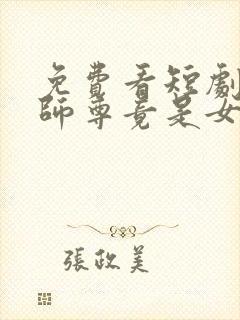 免費看短劇
師尊竟是女
張政美